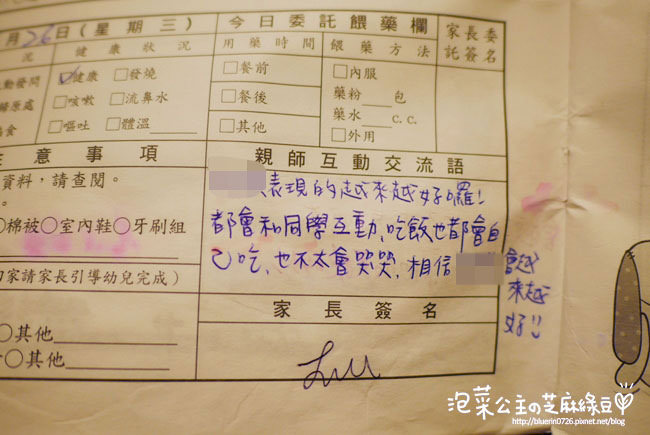 月26日(星期三)
今日委託餵藥欄
家長委
託簽名
況
健康狀況
用藥時間
餵藥方法
動發問
☑健康 □發燒
□餐前
□內服
歸原處
□咳嗽 □流鼻水
□餐後
藥粉___包
藥水___c.c.
食
□嘔吐 □體溫____
□其他
□外用
意事項
親師互動交流語
資料,請查閱。
表現的越來越好囉!
都會和同學互動、吃飯也都會自
己吃、也不太會哭哭,相信 會越
來越
好!!
棉被○室內鞋○牙刷組
家請家長引導幼兒完成)
家長簽名
○其他
○其他
泡菜公主の芝麻綠豆
http://bluerin0726.pixnet.net/blog